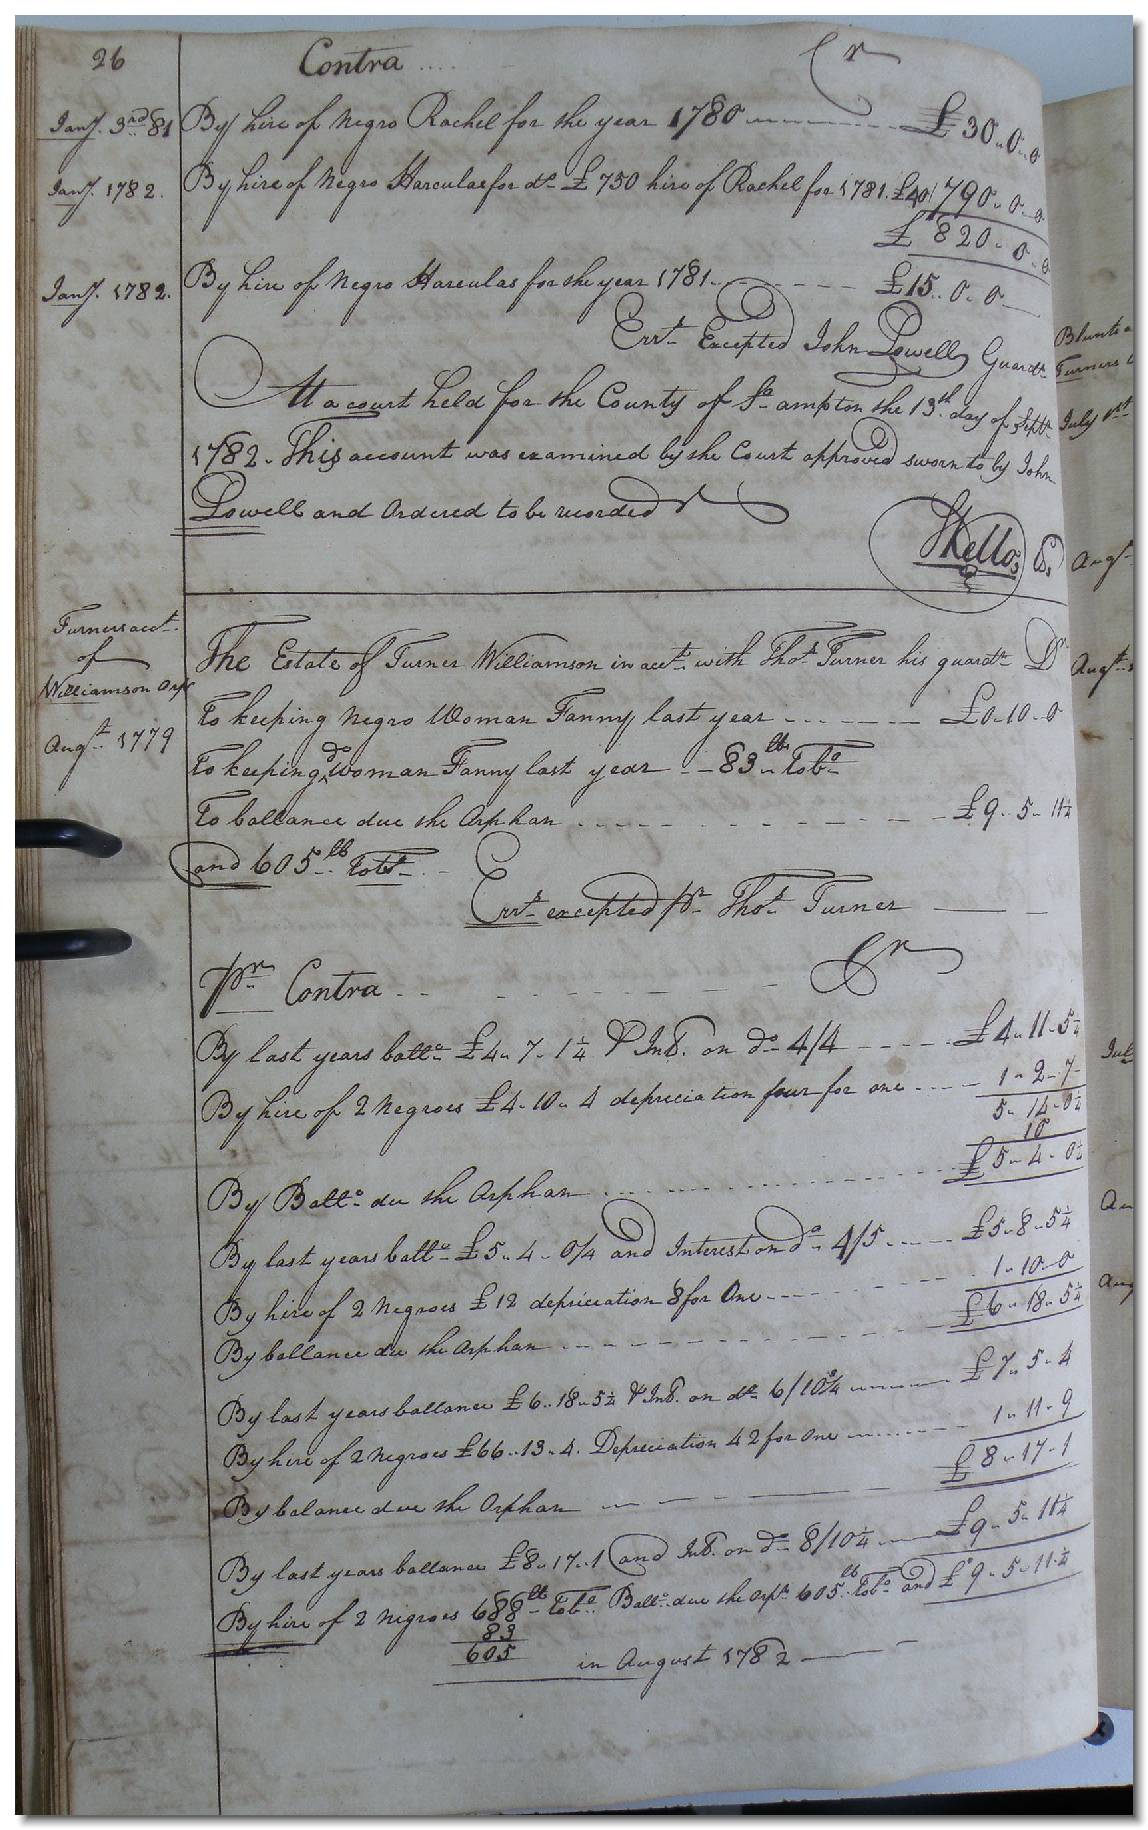 26 Contra .... Cr
Jany. 3rd 81 By hire of Negro Rachel for the year 1780 £30.0.0
Jany. 1782. By hire of Negro Harculas for do £750 hire of Rachel for 1781. £40 790.0.0
£820.0.0
Jany. 1782. By hire of Negro Harculas for the year 1781 £15.0.0
Errs Excepted John Powell Guardn
At a court held for the County of So ampton the 13th day of Septr
1782. This account was examined by the Court approved sworn to by John
Powell and Ordered to be recorded
S Kello Ck
Turners acct.
of
Williamson Orp
The Estate of Turner Williamson in acct. with Thos. Turner his guardn Dr
To keeping Negro Woman Fanny last year £0.10.0
Augt. 1779
To keeping do Woman Fanny last year 83 lb Tobo
To ballance due the Orphan £9.5.11¼
and 605 lb Tobo
Errs excepted pr Thos. Turner
Pr Contra Cr
By last years ballo £4.7.1¼ & Int. on do 4/4 £4.11.5¼
By hire of 2 Negroes £4.10.4 depreciation four for one 1.2.7
5.14.0¼
10
By Ballo. due the Orphan £5.4.0¼
By last years ballo £5.4.0¼ and Interest on do 4/5 £5.8.5¼
By hire of 2 Negroes £12 depreciation 8 for One 1.10.0
By ballance due the Orphan £6.18.5¼
By last years ballance £6.18.5¼ & Int. on do 6/10¾ £7.5.4
By hire of 2 Negroes £66.13.4. Depreciation 42 for one 1.11.9
By balance due the Orphan £8.17.1
By last years ballance £8.17.1 and Int. on do 8/10¼ £9.5.11¼
By hire of 2 Negroes 688 lb Tobo. Ballo. due the Orpn 605 lb Tobo and £9.5.11¼
83
605 in August 1782
Blunts
Turners
July 1st
Augt
Augt
Jul
Au
Aug